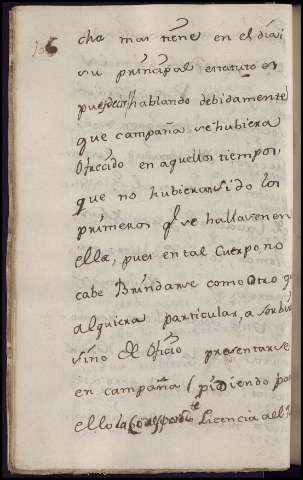 cha mas tiene en el dia
su principal estatuto es
pues decir hablando debidamente
que campaña se hubiera
Ofrecido en aquellos tiempos,
que no hubieran sido los
primeros q.e se hallasen en
ella, pues en tal Cuerpo no
cabe Brindarse como Otro
alquiera particular, a servir
sino de Oficio presentarse
en campaña (pidiendo para
ello la Correspond.te Licencia al